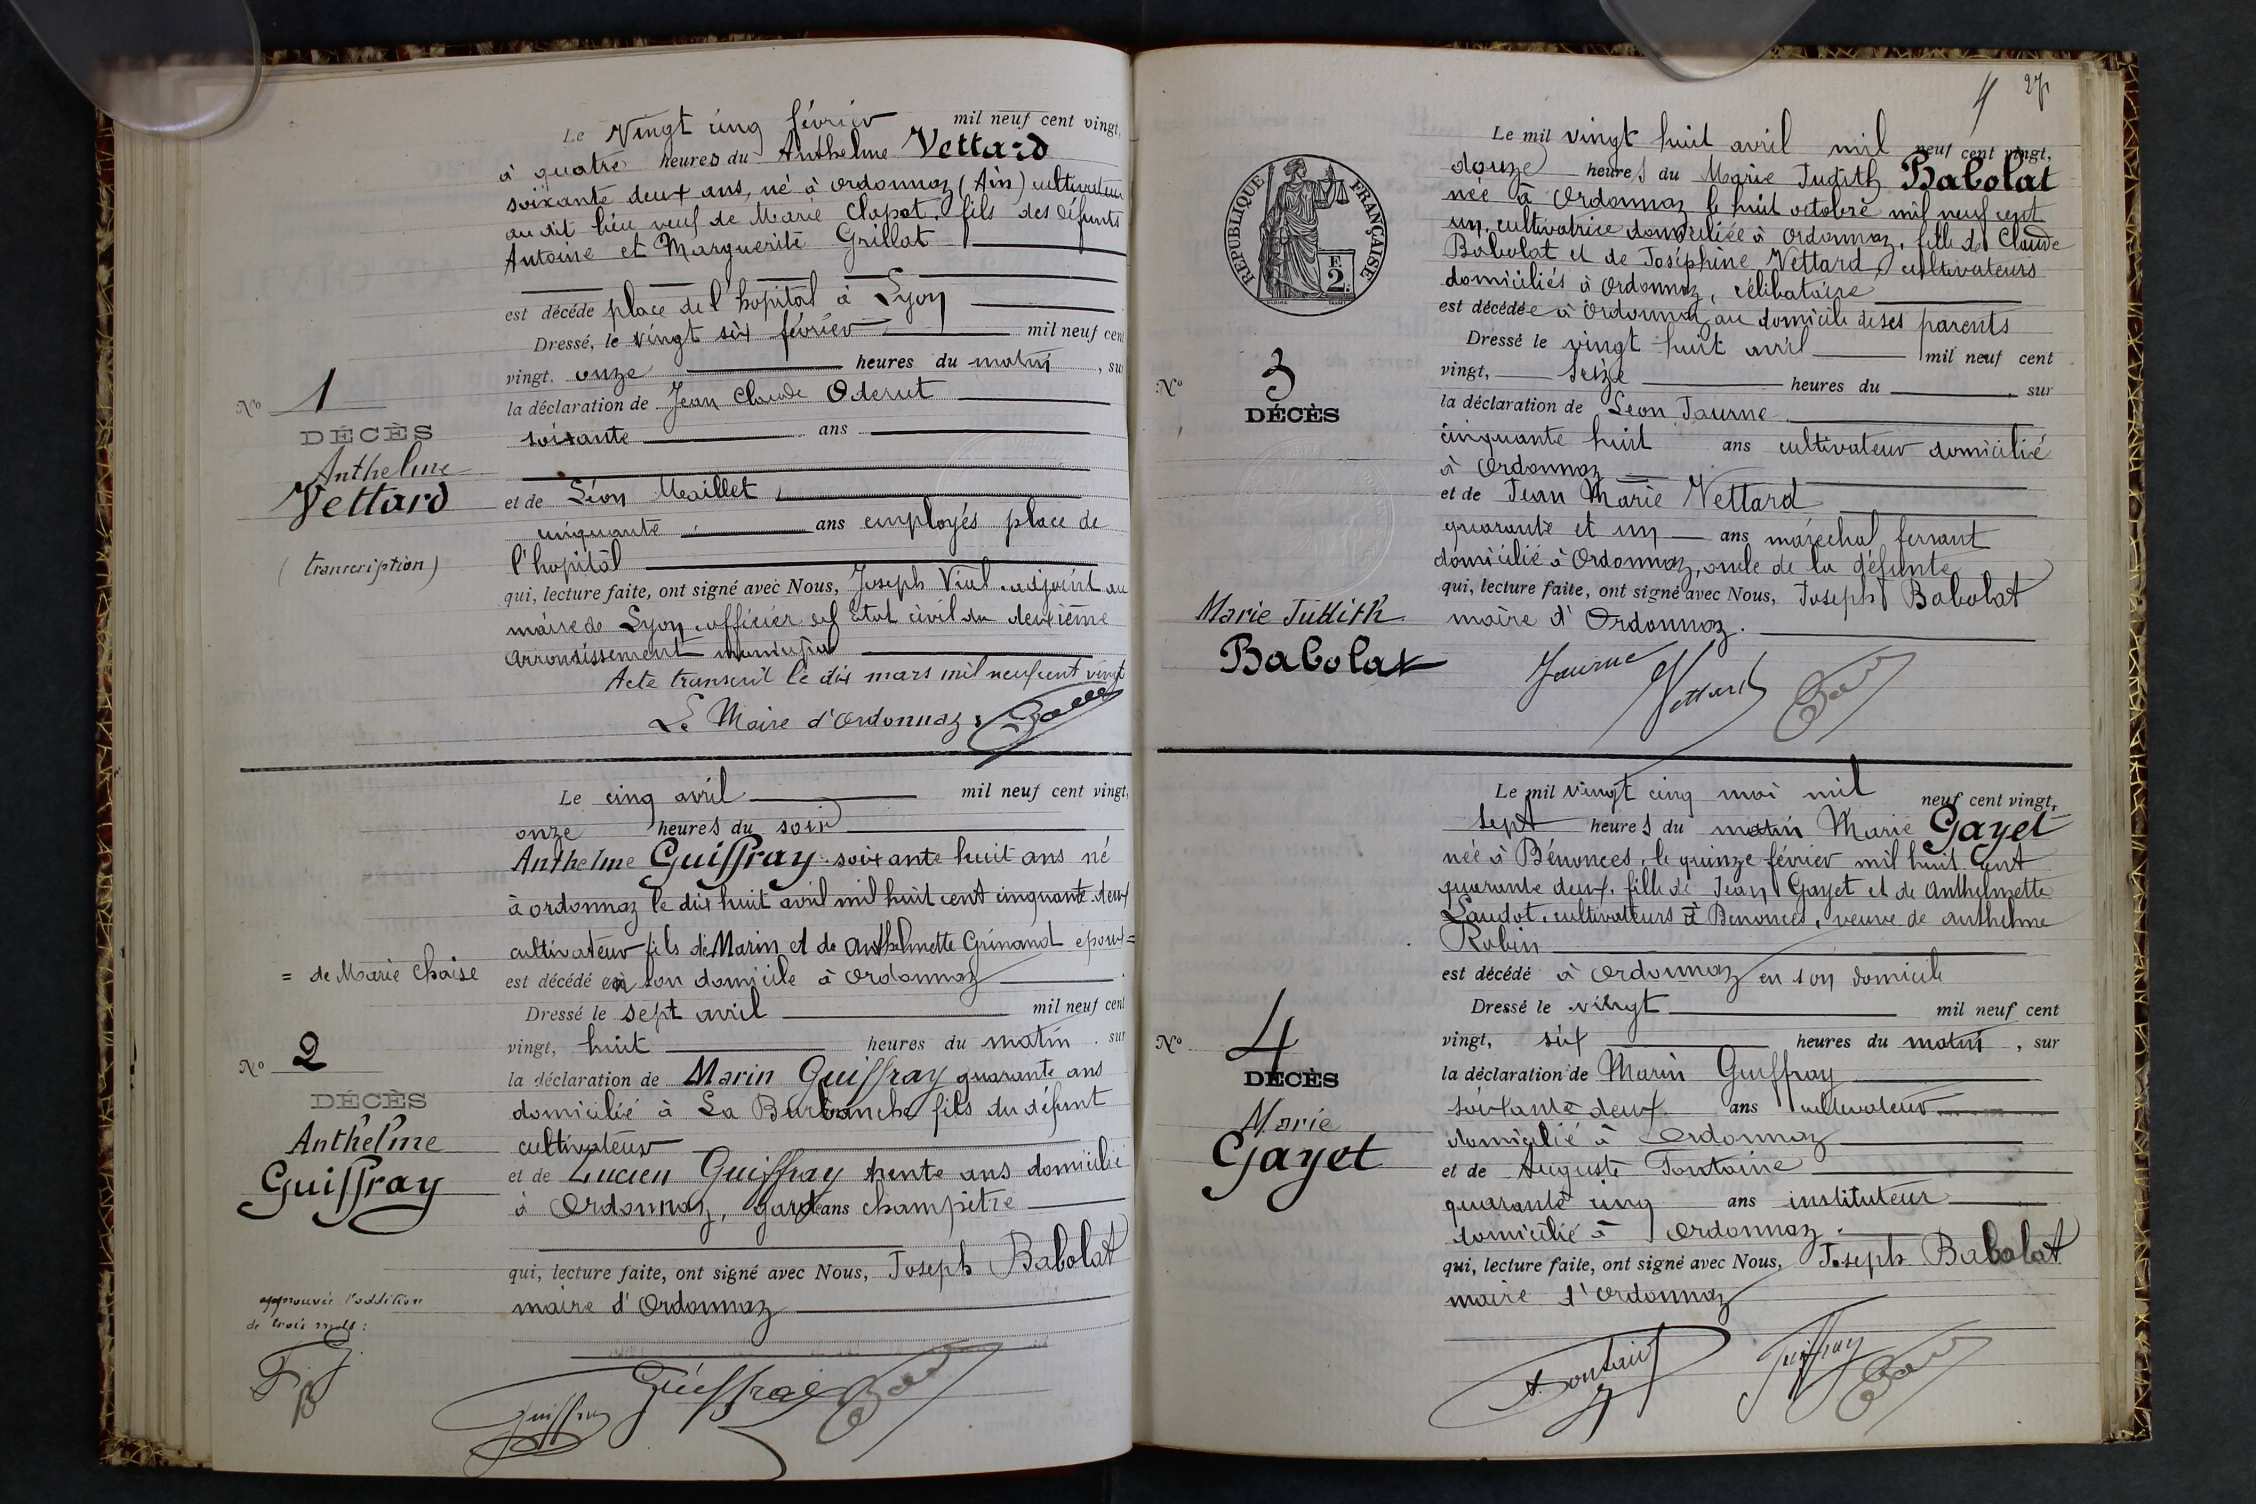 Le Vingt cinq février mil neuf cent vingt,
à quatre heures du Anthelme Vettard
soixante deux ans, né à Ordonnaz (Ain) cultivateur
au dit lieu veuf de Marie Clapot, fils des défunts
Antoine et Marguerite Grillat
est décédé place de l'hopital à Lyon
Dressé, le vingt six février mil neuf cent
vingt. onze heures du matin, sur
la déclaration de Jean Claude Oderut
soixante ans
et de Léon Maillet
cinquante ans employés place de
l'hopital
qui, lecture faite, ont signé avec Nous, Joseph Vial adjoint au
maire de Lyon officier de l'Etat civil du deuxième
arrondissement municipal
Acte transcrit le dix mars mil neuf cent vingt
Le Maire d'Ordonnaz
No 1
DÉCÈS
Anthelme
Vettard
(transcription)
Le cinq avril mil neuf cent vingt,
onze heures du soir
Anthelme Guiffray soixante huit ans né
à ordonnaz le dix huit avril mil huit cent cinquante deux
cultivateur fils de Marin et de Anthelmette Grinand epoux =
= de Marie Chaise
est décédé en son domicile à Ordonnaz
Dressé le sept avril mil neuf cent
vingt, huit heures du matin. sur
la déclaration de Marin Guiffray quarante ans
domicilié à La Burbanche fils du défunt
cultivateur
et de Lucien Guiffray trente ans domicilié
à Ordonnaz, garde ans champêtre
qui, lecture faite, ont signé avec Nous, Joseph Babolat
maire d'Ordonnaz
No 2
DÉCÈS
Anthelme
Guiffray
approuvée l'addition
de trois mots :
F. G.
B
Guiffray
Guiffray
4 27
REPUBLIQUE FRANÇAISE
2F.
Le mil vingt huit avril mil neuf cent vingt,
douze heures du Marie Judith Babolat
née à Ordonnaz le huit octobre mil neuf cent
un, cultivatrice domiciliée à Ordonnaz, fille de Claude
Babolat et de Joséphine Vettard, cultivateurs
domiciliés à Ordonnaz, célibataire
est décédée à Ordonnaz au domicile de ses parents
Dressé le vingt huit avril mil neuf cent
vingt, seize heures du , sur
la déclaration de Léon Journe
cinquante huit ans cultivateur domicilié
à Ordonnaz
et de Jean Marie Vettard
quarante et un ans maréchal ferrant
domicilié à Ordonnaz, oncle de la défunte
qui, lecture faite, ont signé avec Nous, Joseph Babolat
maire d'Ordonnaz.
Journe Vettard
No 3
DÉCÈS
Marie Judith
Babolat
Le mil vingt cinq mai mil neuf cent vingt,
sept heures du matin Marie Gayet
née à Bénonces, le quinze février mil huit cent
quarante deux, fille de Jean Gayet et de Anthelmette
Laudot, cultivateurs à Bénonces, veuve de anthelme
Robin
est décédé à Ordonnaz en son domicile
Dressé le vingt mil neuf cent
vingt, six heures du matin, sur
la déclaration de Marin Guiffray
soixante deux ans cultivateur
domicilié à Ordonnaz
et de Auguste Fontaine
quarante cinq ans instituteur
domicilié à Ordonnaz.
qui, lecture faite, ont signé avec Nous, Joseph Babolat
maire d'Ordonnaz
No 4
DÉCÈS
Marie
Gayet
A. Fontaine Guiffray